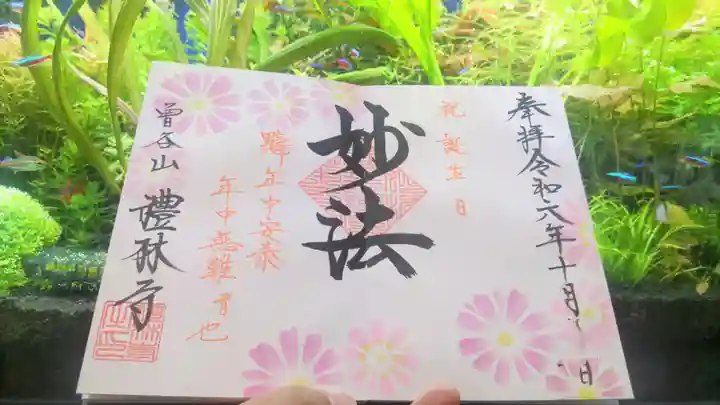 奉拝令和六年十月
日
祝誕生日
妙法
年中安泰
年中無難者也
曽谷山
禮林寺